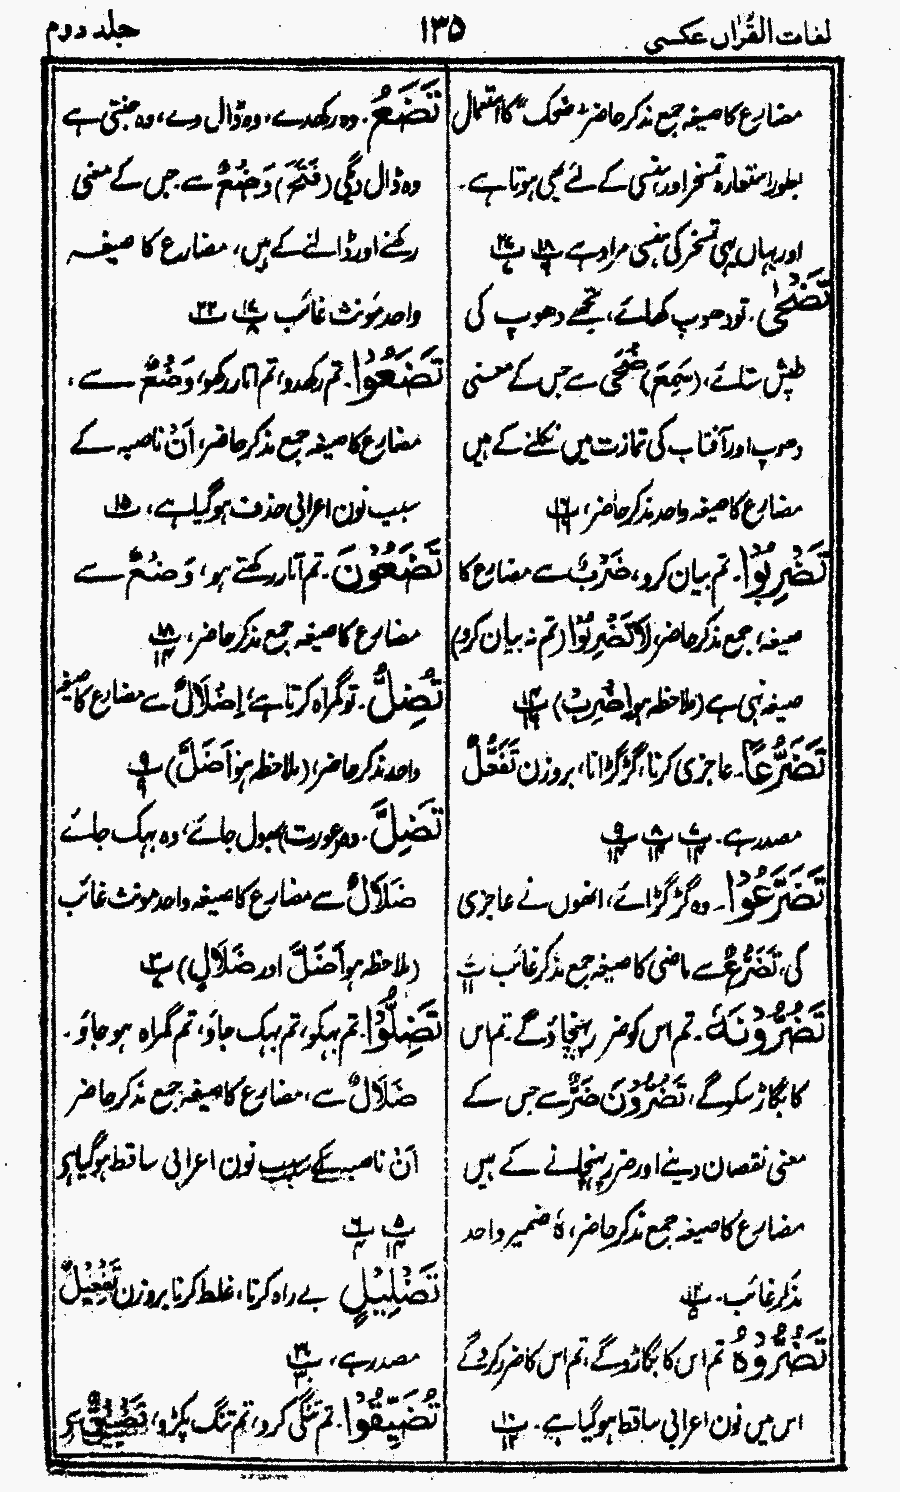 لغات القرآن عکسی
۱۳۵
جلد دوم
مضارع کا صیغہ جمع مذکر حاضر ضحک کا استعمال
بطور استعارہ تمسخر اور ہنسی کے لئے بھی ہوتا ہے۔
اور یہاں یہی تمسخر کی ہنسی مراد ہے پ۱۸ پ۲۷
تَضْحٰی۔ تو دھوپ کھائے، تجھے دھوپ کی
طپش ستائے، (سَمِعَ) ضَحْیٌ سے جس کے معنی
دھوپ اور آفتاب کی تمازت میں نکلنے کے ہیں
مضارع کا صیغہ واحد مذکر حاضر، پ۱۶
تَضْرِبُوْا۔ تم بیان کرو، ضَرْبٌ سے مضارع کا
صیغہ، جمع مذکر حاضر، لَا تَضْرِبُوْا (تم نہ بیان کرو)
صیغہ نہی ہے (ملاحظہ ہو اِضْرِبْ) پ۱۴
تَضَرُّعًا۔ عاجزی کرنا، گڑگڑانا، بروزن تَفَعُّلٌ
مصدر ہے۔ پ۷ پ۸ پ۹
تَضَرَّعُوْا۔ وہ گڑگڑائے، انھوں نے عاجزی
کی، تَضَرُّعٌ سے ماضی کا صیغہ جمع مذکر غائب
تَضُرُّوْنَہٗ۔ تم اس کو ضرر پہنچاؤگے۔ تم اس
کا بگاڑ سکوگے، تَضُرُّوْنَ ضَرٌّ سے جس کے
معنی نقصان دینے اور ضرر پہنچانے کے ہیں
مضارع کا صیغہ جمع مذکر حاضر، ہٗ ضمیر واحد
مذکر غائب۔ پ۱۲
تَضُرُّوْہُ تم اس کا بگاڑوگے، تم اس کا ضرر کروگے
اس میں نون اعرابی ساقط ہوگیا ہے۔ پ۱۰
تَضَعُ۔ وہ رکھدے، وہ ڈال دے، وہ جنتی ہے
وہ ڈال دیگی (فَتَحَ) وَضْعٌ سے۔ جس کے معنی
رکھنے اور ڈالنے کے ہیں، مضارع کا صیغہ
واحد مؤنث غائب پ۱۷ پ۲۲
تَضَعُوْا۔ تم رکھدو، تم اتار رکھو، وَضْعٌ سے،
مضارع کا صیغہ جمع مذکر حاضر، اَنْ ناصبہ کے
سبب نون اعرابی حذف ہوگیا ہے، پ۱۵
تَضَعُوْنَ۔ تم اتار رکھتے ہو، وَضْعٌ سے
مضارع کا صیغہ جمع مذکر حاضر، پ۱۸
تُضِلُّ۔ تو گمراہ کرتا ہے، اِضْلَالٌ سے مضارع کا صیغہ
واحد مذکر حاضر، (ملاحظہ ہو اَضَلَّ) پ۹
تَضِلَّ۔ وہ (عورت) بھول جائے، وہ بہک جائے
ضَلَالٌ سے مضارع کا صیغہ واحد مؤنث غائب
(ملاحظہ ہو اَضَلَّ اور ضَلَالٍ) پ۳
تَضِلُّوْا۔ تم بہکو، تم بہک جاؤ، تم گمراہ ہو جاؤ۔
ضَلَالٌ سے، مضارع کا صیغہ جمع مذکر حاضر
اَنْ ناصبہ کے سبب نون اعرابی ساقط ہوگیا ہے
پ۵ پ۶
تَضْلِیْلٍ بے راہ کرنا، غلط کرنا بروزن تَفْعِیْلٌ
مصدر ہے، پ۳۰
تُضَیِّقُوْا۔ تم تنگی کرو، تم تنگ پکڑو، تَضْیِیْقٌ سے